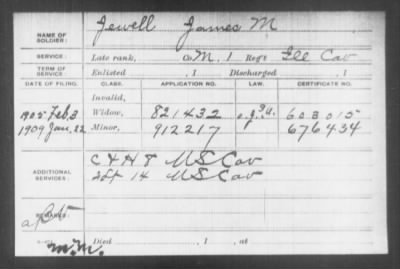 NAME OF SOLDIER: Jewell James M
SERVICE: Late rank, Co. M, 1 Reg't Ill Cav
TERM OF SERVICE: Enlisted , 1 Discharged , 1
DATE OF FILING. CLASS. APPLICATION NO. LAW. CERTIFICATE NO.
Invalid,
1905 Feb. 3 Widow, 821432 603015
1909 Jan. 22 Minor, 912217 676434
ADDITIONAL SERVICES: C & H 8 U S Cav
14 U S Cav
REMARKS:
Died , 1 , at